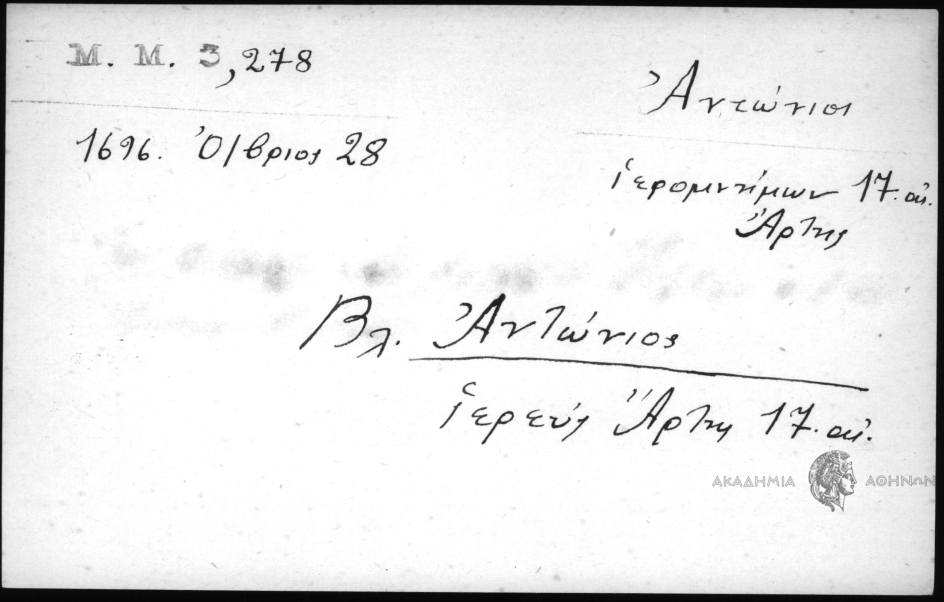 Μ. Μ. 3, 278
Ἀντώνιος
1696. Ὀ/βριος 28
ἱερομνήμων 17. αἰ.
Ἄρτης
Βλ. Ἀντώνιος
ἱερεύς Ἄρτης 17. αἰ.
ΑΚΑΔΗΜΙΑ ΑΘΗΝΩΝ